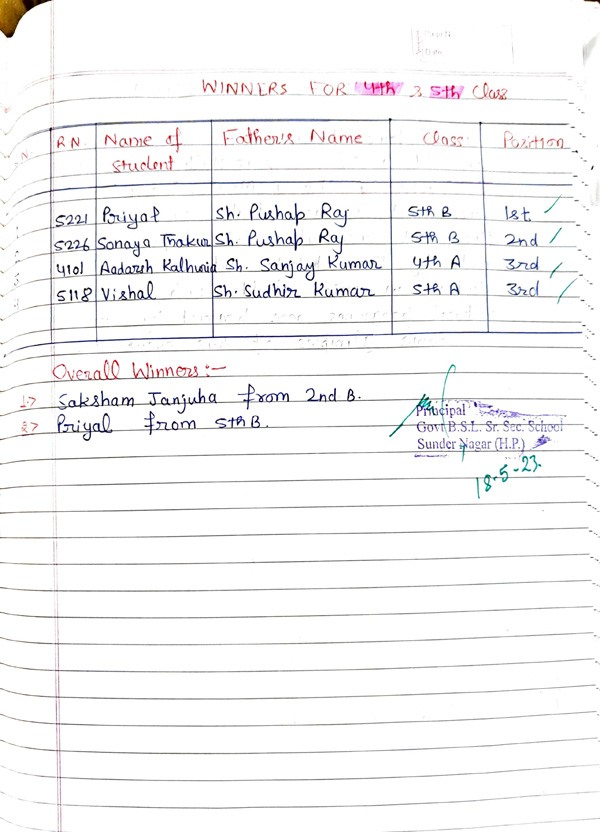 WINNERS FOR 4th & 5th Class
R N Name of Student Father's Name Class Position
5221 Priyal Sh. Pushap Raj 5th B 1st
5226 Sonaya Thakur Sh. Pushap Raj 5th B 2nd
4101 Aadarsh Kalhunia Sh. Sanjay Kumar 4th A 3rd
5118 Vishal Sh. Sudhir Kumar 5th A 3rd
Overall Winners :-
1-> Saksham Janjuha from 2nd B.
2> Priyal from 5th B.
Principal
Govt B.S.L. Sr. Sec. School
Sunder Nagar (H.P.)
18-5-23.